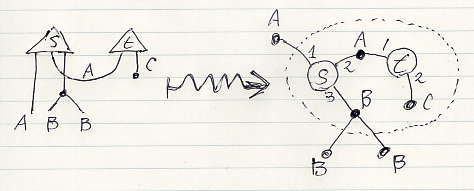 S t
A C
A B B
A
1 A 1
S 2 t
3 2
B C
B B